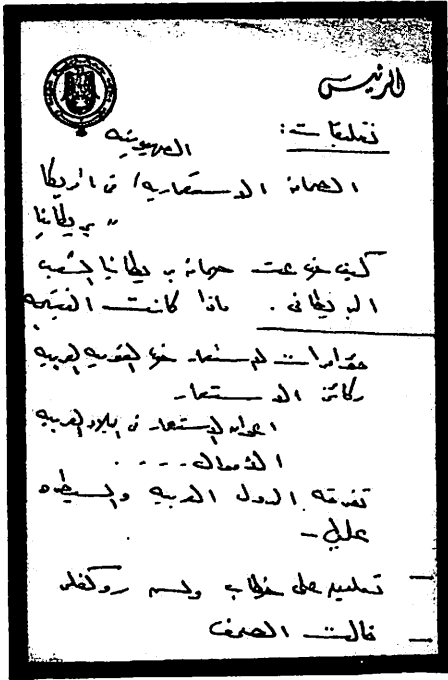 الرئيس
تعليقات:
الصهيونية
الصحافة الاستعمارية / في امريكا
" بريطانيا
كيف خدعت صحافة بريطانيا الشعب
البريطاني . ماذا كانت النتيجة
مؤامرات الاستعمار ضد القومية العربية
ركائز الاستعمار
اعوان الاستعمار في البلاد العربية
الأموال ....
تفرقة الدول العربية والسيطرة
على -
تعليق على خطاب روكفلر —
قالت الصحف —